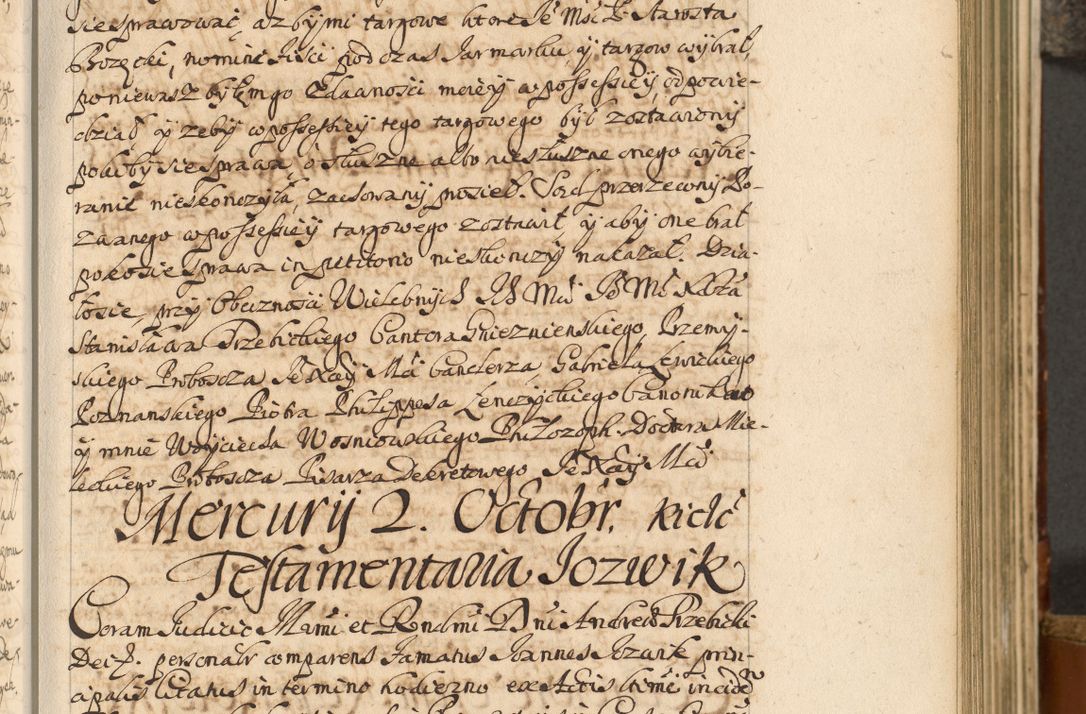 sie sprawować, aż by mi targowe ktore Je Mść P. Starosta
Bozęcki, nomine Jiści pod czas Jarmarku, y targow wybrał,
poniewasz był mgo zdawności mojey w possessiey odpowie-
dział y zeby w possessiey tego targowego był zostawiony
poki by sie sprawa, o słuszne albo niesłuszne onego wybie-
ranie nieskonczyła, zachowany prosieł. Sąd przerzeczny Po-
zwanego w possessiey targowego zostawił, y aby one brał
poko sie sprawa in petitorio nieskonczy nakazał. Dzia-
ło sie, przy Obecznosci Wielebnych Ich Mci
Stanisława Trzebickiego Cantora Gnieznienskiego, Przemy-
skiego Proboscza Je Xey Mci Canclerza, Gabriela Lewickiego
Poznanskiego Piotra Philippesa Lenczyckiego Canonikow
y mnie Woyciecha Wosniowskiego Philozoph. Doctora Mie-
leckiego Proboscza Pisarza Dekretowego Je Xey Mci
Mercurij 2. Octobr. Kielc
Testamentaria Jozwik
Coram Judicio Illmi et Rndmi Dni Andreae Trzebicki
Dei &. personalr comparens Famatus Joannes Jozwik prin-
cipalis Citatus in termino hodierno ex Actis